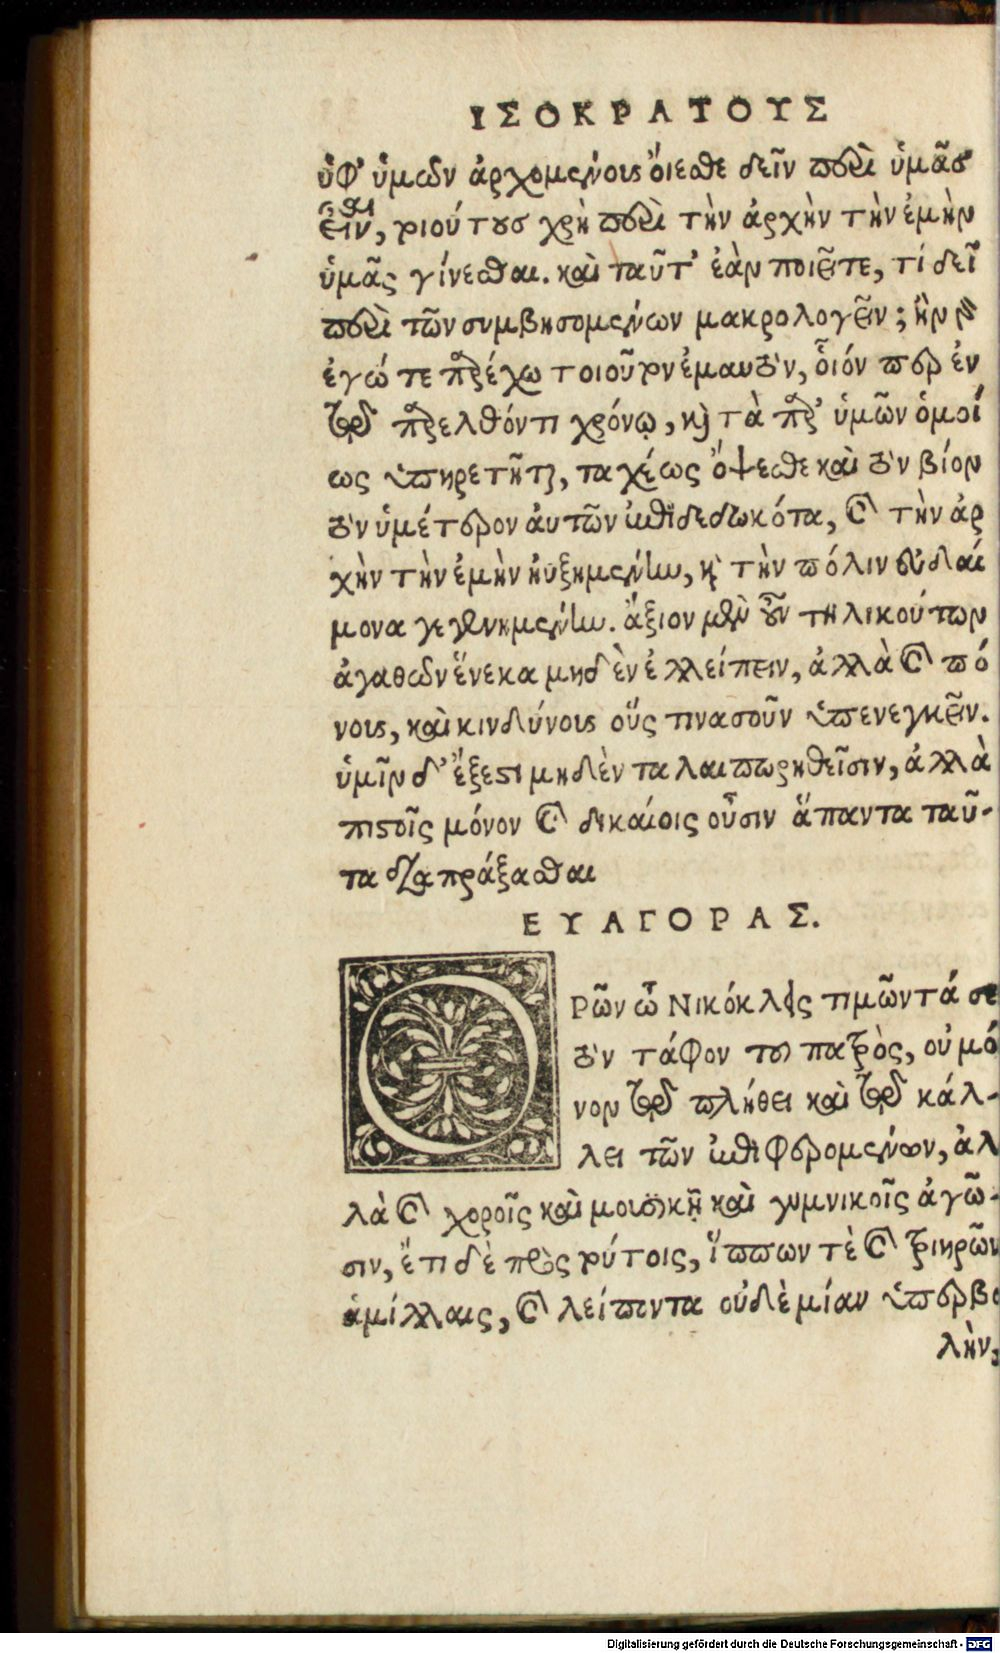 ΙΣΟΚΡΑΤΟΥΣ
ὑφ' ὑμῶν ἀρχομένους οἴεσθε δεῖν περὶ ὑμᾶς
εἶναι, τοιούτους χρὴ περὶ τὴν ἀρχὴν τὴν ἐμὴν
ὑμᾶς γίνεσθαι. καὶ ταῦτ' ἐὰν ποιῆτε, τί δεῖ
περὶ τῶν συμβησομένων μακρολογεῖν; ἢν γὰρ
ἐγώ τε παρέχω τοιοῦτον ἐμαυτὸν, οἷόν περ ἐν
τῷ παρελθόντι χρόνῳ, καὶ τὰ παρ' ὑμῶν ὁμοί
ως ὑπηρετῆται, ταχέως ὄψεσθε καὶ τὸν βίον
τὸν ὑμέτερον αὐτῶν ἐπιδεδωκότα, καὶ τὴν ἀρ
χὴν τὴν ἐμὴν ηὐξημένην, καὶ τὴν πόλιν εὐδαί
μονα γεγενημένην. ἄξιον μὲν οὖν τηλικούτων
ἀγαθῶν ἕνεκα μηδὲν ἐλλείπειν, ἀλλὰ καὶ πό
νους, καὶ κινδύνους οὕς τινασοῦν ὑπενεγκεῖν.
ὑμῖν δ' ἔξεστι μηδὲν ταλαιπωρηθεῖσιν, ἀλλὰ
πιστοῖς μόνον καὶ δικαίοις οὖσιν ἅπαντα ταῦ-
τα διαπράξασθαι
ΕΥΑΓΟΡΑΣ.
ΟΡῶν ὦ Νικόκλεις τιμῶντά σε
τὸν τάφον τοῦ πατρὸς, οὐ μό
νον τῷ πλήθει καὶ τῷ κάλ-
λει τῶν ἐπιφερομένων, ἀλ
λὰ καὶ χοροῖς καὶ μουσικῇ καὶ γυμνικοῖς ἀγῶ-
σιν, ἔτι δὲ πρὸς τούτοις, ἵππων τὲ καὶ τριηρῶν
ἁμίλλαις, καὶ λείποντα οὐδὲ μίαν ὑπερβο
λὴν,
Digitalisierung gefördert durch die Deutsche Forschungsgemeinschaft - DFG